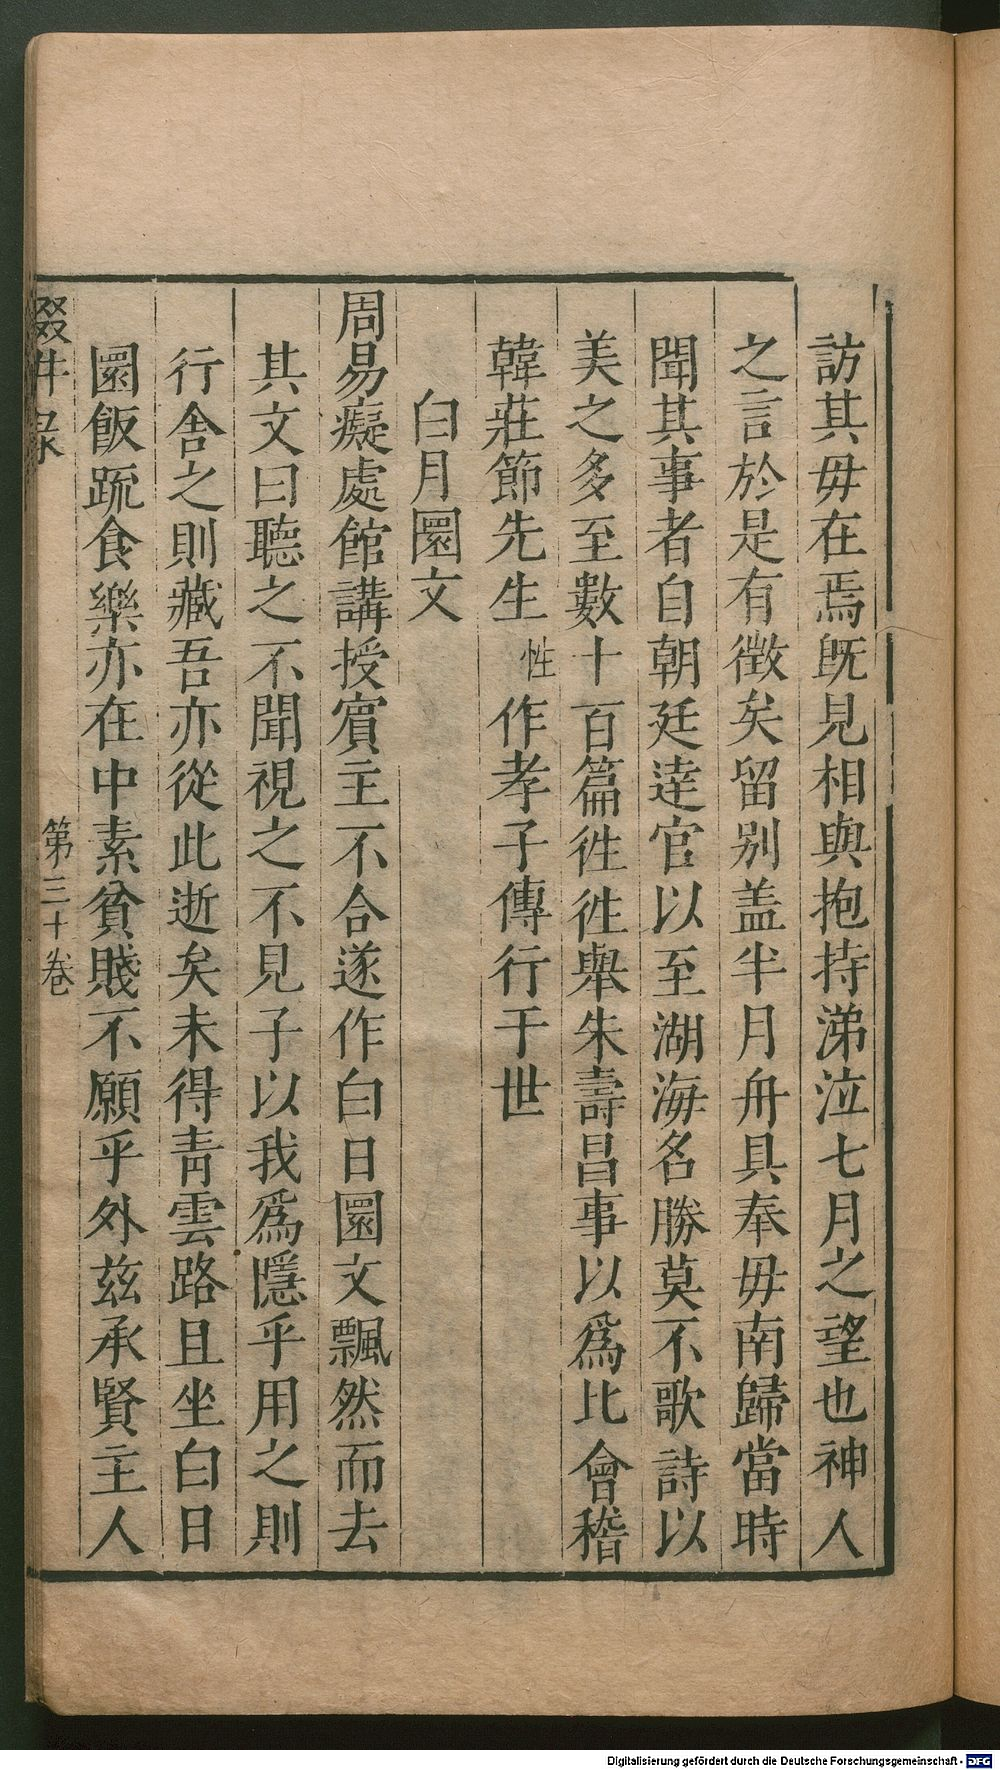 訪其毋在焉既見相與抱持涕泣七月之望也神人
之言於是有徵矣留别盖半月舟具奉毋南歸當時
聞其事者自朝廷達官以至湖海名勝莫不歌詩以
美之多至數十百篇徃徃舉朱壽昌事以爲比會稽
韓莊節先生性作孝子傳行于世
白月圜文
周易癡處館講授賔主不合遂作白日圜文飄然而去
其文曰聽之不聞視之不見子以我爲隱乎用之則
行舎之則藏吾亦從此逝矣未得青雲路且坐白日
圜飯䟽食樂亦在中素貧賤不願乎外兹承賢主人
輟畊录
第三十卷
Digitalisierung gefördert durch die Deutsche Forschungsgemeinschaft - DFG